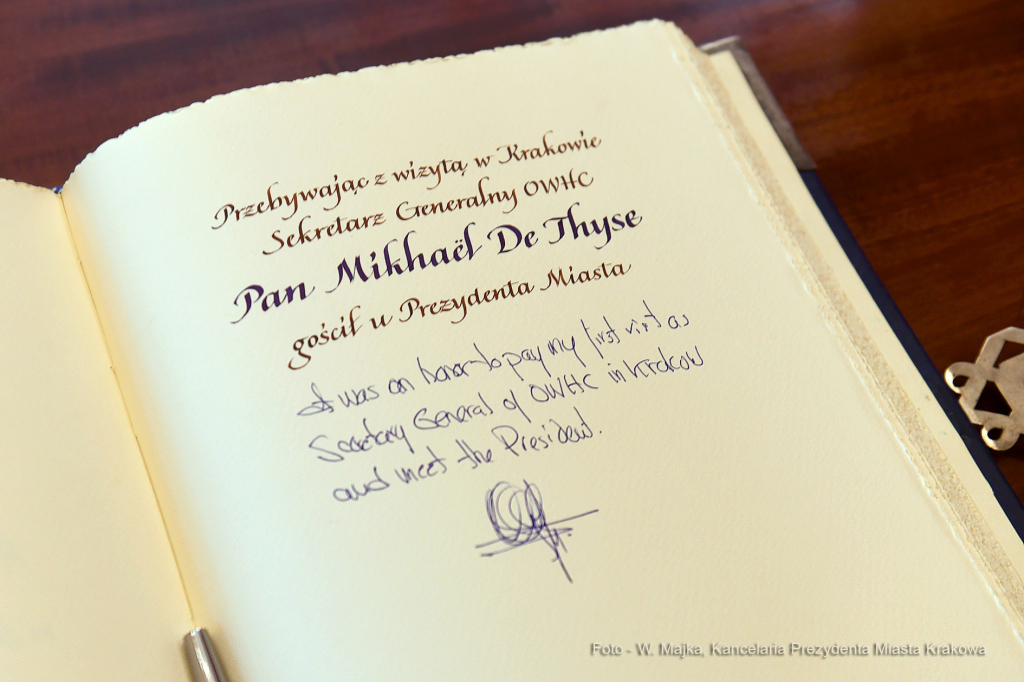 Przebywając z wizytą w Krakowie
Sekretarz Generalny OWHC
Pan Mikhaël De Thyse
gościł u Prezydenta Miasta
It was an honor to pay my first visit as
Secretary General of OWHC in Krakow
and meet the President.
Foto - W. Majka, Kancelaria Prezydenta Miasta Krakowa